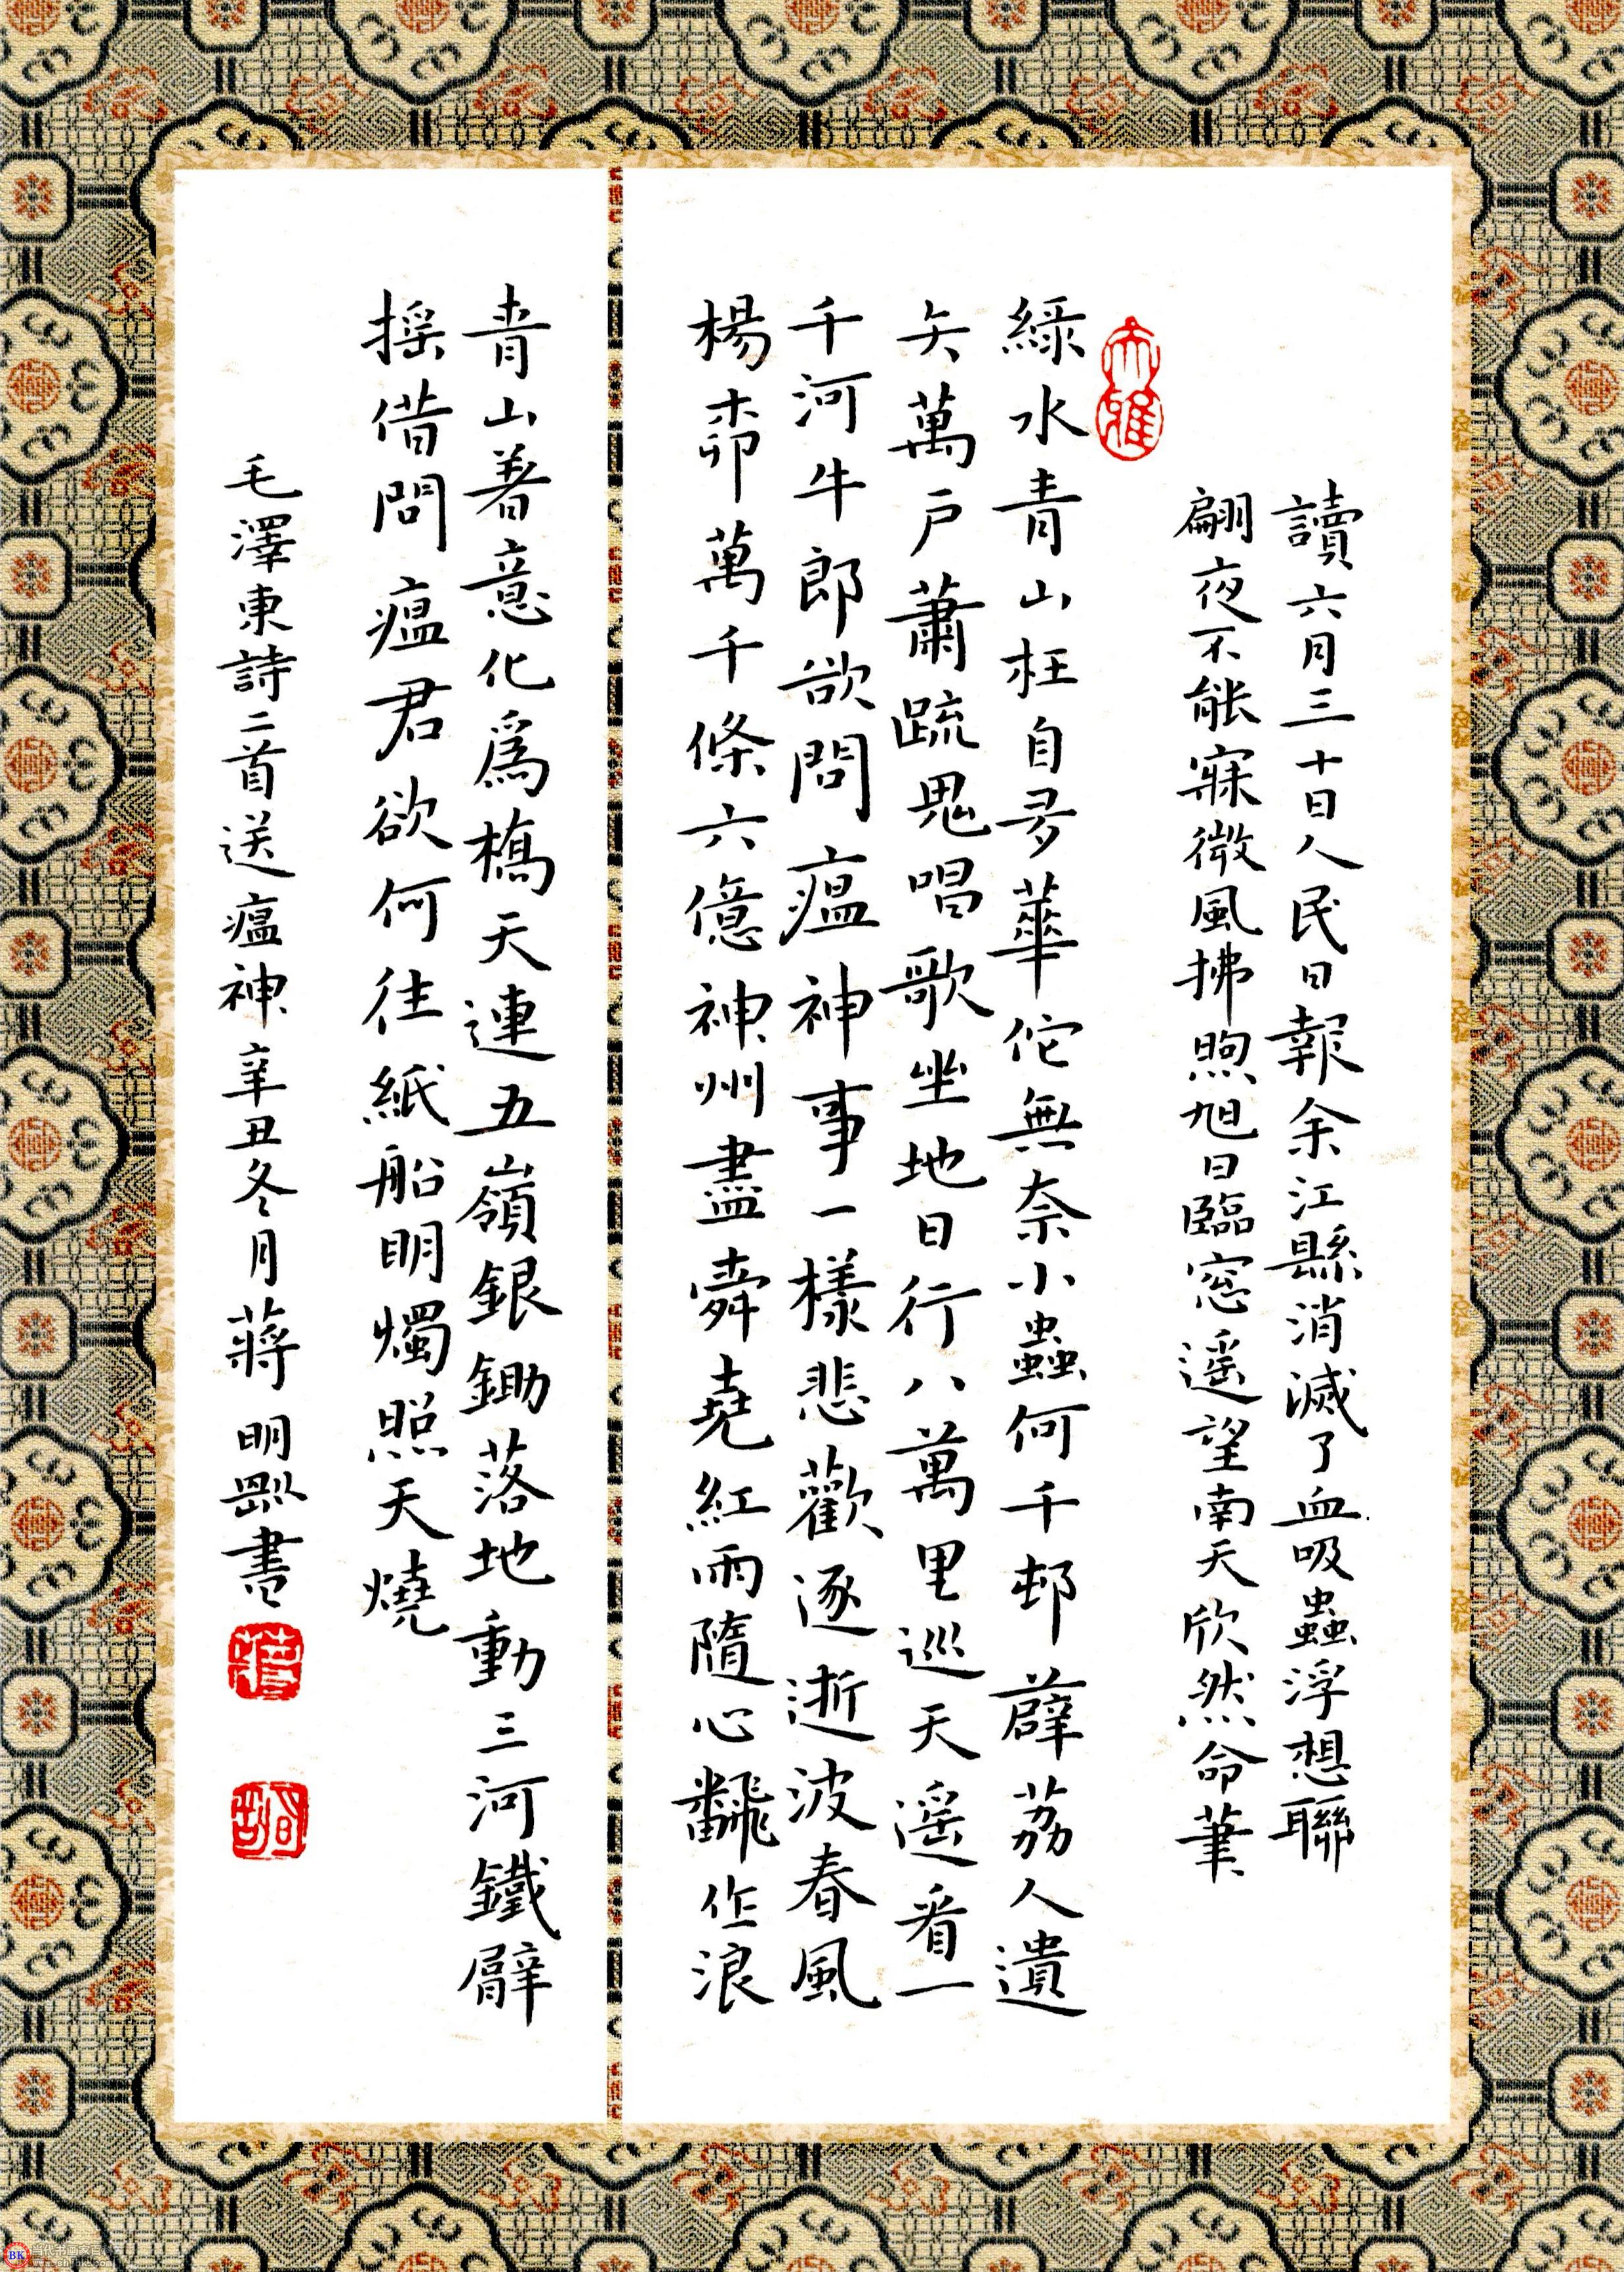 讀六月三十日人民日報余江縣消滅了血吸蟲浮想聯
翩夜不能寐微風拂煦旭日臨窓遥望南天欣然命筆
大雅
綠水青山枉自多華佗無奈小蟲何千邨薜荔人遺
矢萬戶蕭疏鬼唱歌坐地日行八萬里巡天遥看一
千河牛郎欲問瘟神事一樣悲歡逐逝波春風
楊桺萬千條六億神州盡舜堯紅雨隨心飜作浪
青山著意化爲橋天連五嶺銀鋤落地動三河鐵臂
摇借問瘟君欲何往紙船明燭照天燒
毛澤東詩二首送瘟神辛丑冬月蔣明書